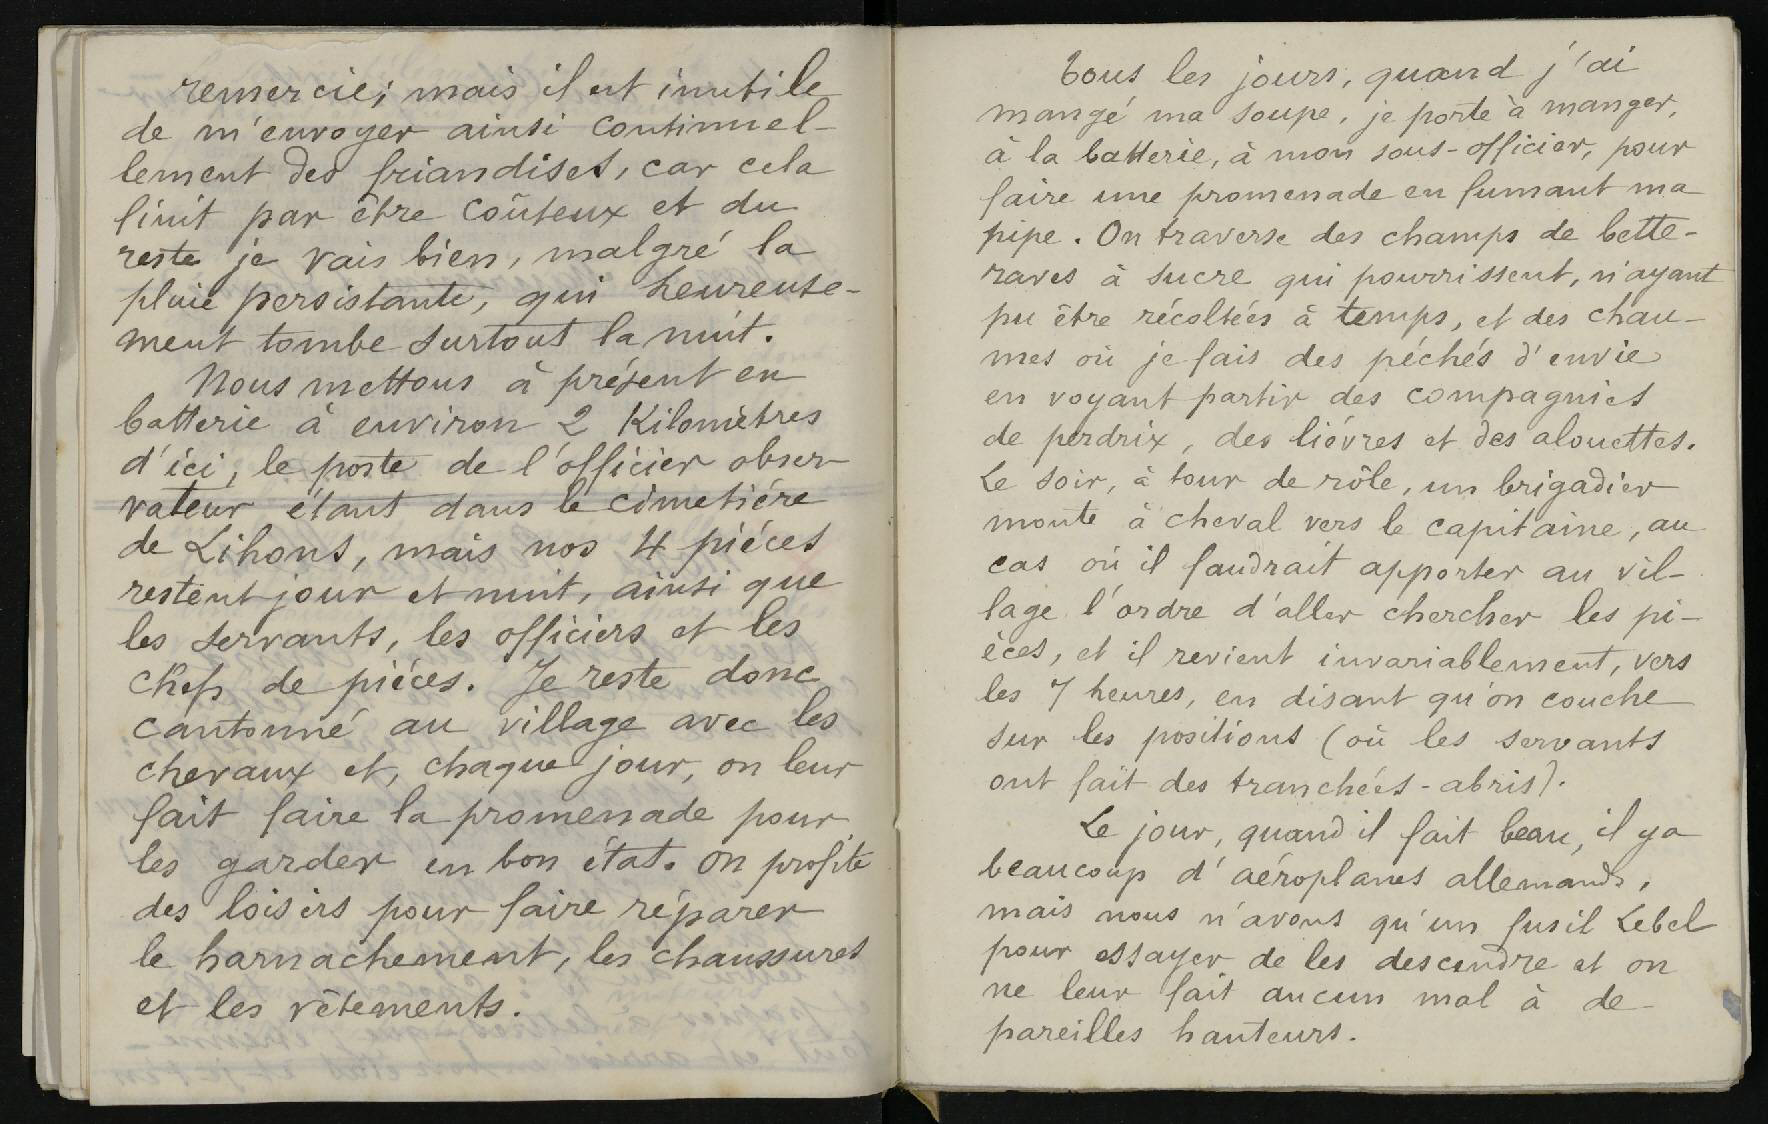 remercie; mais il est inutile
de m'envoyer ainsi continuel-
lement des friandises, car cela
finit par être coûteux et du
reste je vais bien, malgré la
pluie persistante, qui heureuse-
ment tombe surtout la nuit.
Nous mettons à présent en
batterie à environ 2 Kilomètres
d'ici, le poste de l'officier obser-
vateur étant dans le cimetière
de Lihons, mais nos 4 pièces
restent jour et nuit, ainsi que
les servants, les officiers et les
chefs de pièces. Je reste donc
cantonné au village avec les
chevaux et, chaque jour, on leur
fait faire la promenade pour
les garder en bon état. On profite
des loisirs pour faire réparer
le harnachement, les chaussures
et les vêtements.
Tous les jours, quand j'ai
mangé ma soupe, je porte à manger,
à la batterie, à mon sous-officier, pour
faire une promenade en fumant ma
pipe. On traverse des champs de bette-
raves à sucre qui pourrissent, n'ayant
pu être récoltées à temps, et des chau-
mes où je fais des péchés d'envie
en voyant partir des compagnies
de perdrix, des lièvres et des alouettes.
Le soir, à tour de rôle, un brigadier
monte à cheval vers le capitaine, au
cas où il faudrait apporter au vil-
lage l'ordre d'aller chercher les pi-
èces, et il revient invariablement, vers
les 7 heures, en disant qu'on couche
sur les positions (où les servants
ont fait des tranchées-abris).
Le jour, quand il fait beau, il y a
beaucoup d'aéroplanes allemands,
mais nous n'avons qu'un fusil Lebel
pour essayer de les descendre et on
ne leur fait aucun mal à de
pareilles hauteurs.